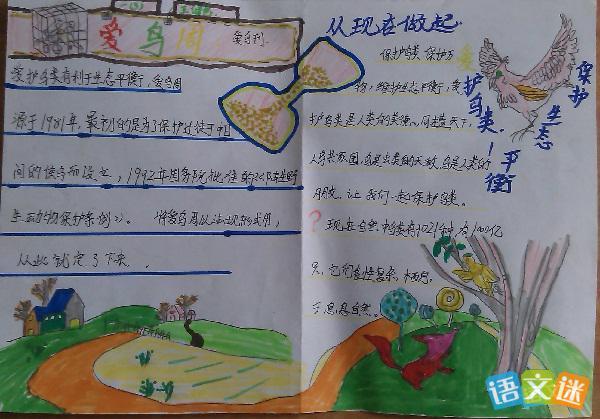 爱鸟周
爱鸟刊.
爱护鸟类有利于生态平衡，爱鸟周
源于1981年，最初的是为了保护迁徙于中日
间的候鸟而设立，1992年国务院批准的《陆生野
生动物保护条例》。将爱鸟周以法规的形式，
从此就定了下来.
从现在做起
保护鸟类 保护万
物，维护生态平衡，爱
护鸟类是人类的责任心，同在蓝天下，
人鸟是家园，鸟是人类的
朋友，让我们一起保护鸟类。
? 现在自然 中鸟类有9021种，有100亿
只，它们
息自然。
爱护鸟类，平衡
生态
保护
语文迷